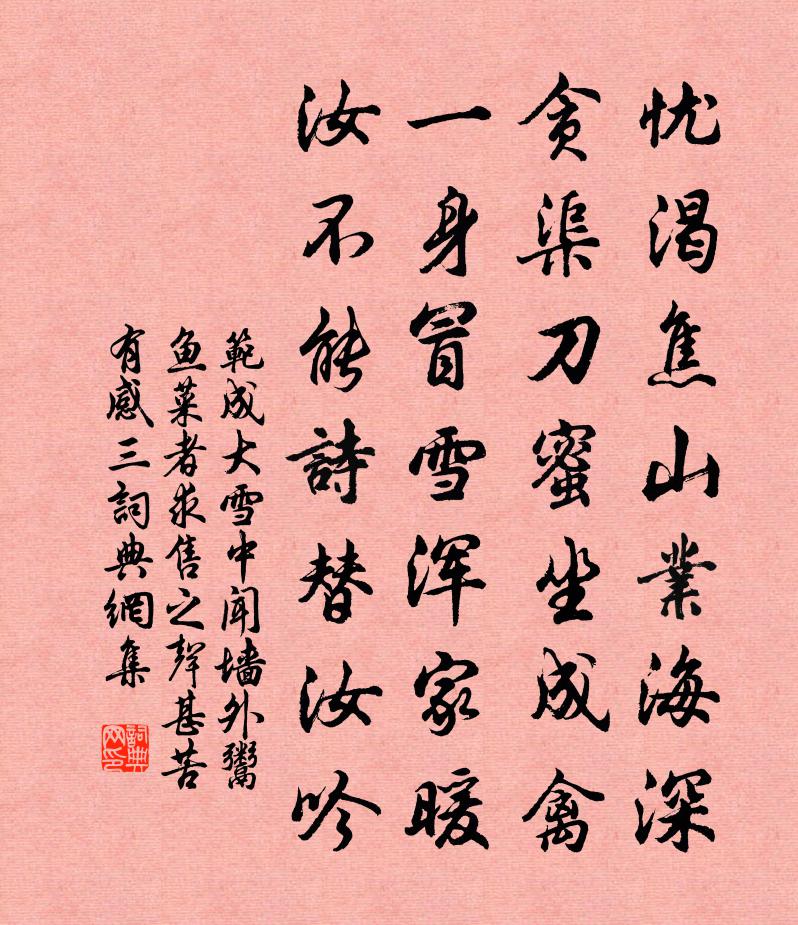 忧渴焦山业海深
贪渠刀蜜坐成禽
一身冒雪浑家暖
汝不能詩替汝吟
範成大雪中闻墙外鬻
鱼菜者求售之聲甚苦
有感三詞典網集
詞典网印